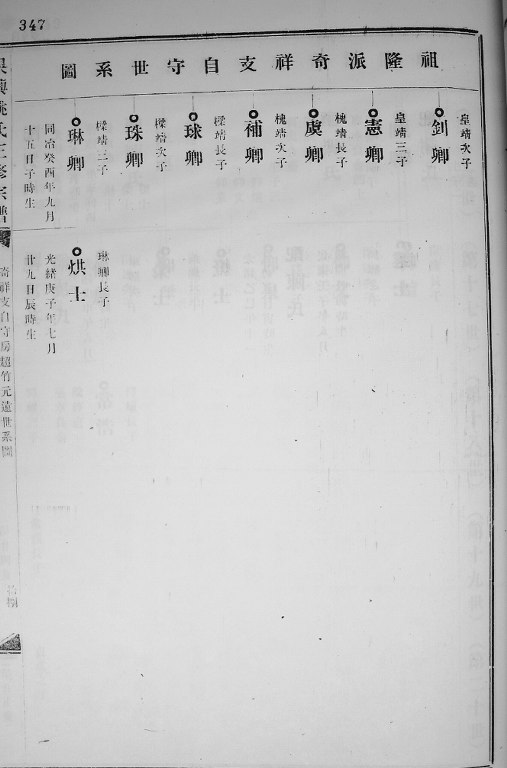 347
祖隆派奇祥支自守世系圖
皇靖次子
釗卿
皇靖三子
憲卿
槐靖長子
虞卿
槐靖次子
補卿
樑靖長子
球卿
樑靖次子
珠卿
樑靖三子
琳卿
同治癸酉年九月
十五日子時生
琳卿長子
烘士
光緒庚子年七月
廿九日辰時生
奇祥支自守房趙竹元遠世系圖